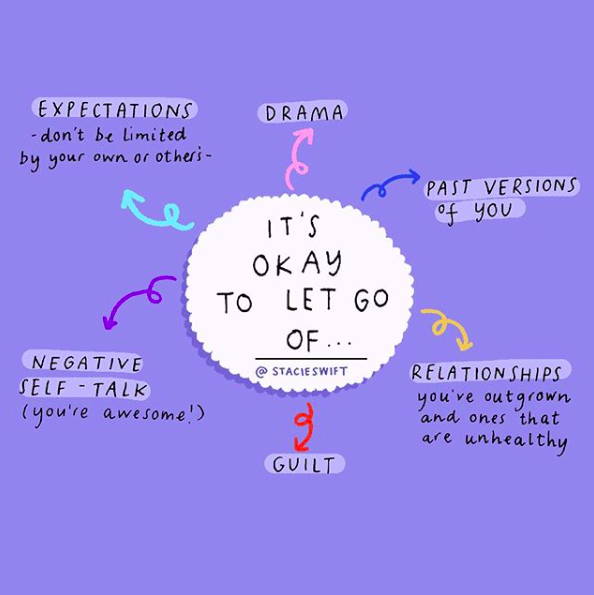 EXPECTATIONS
-don't be limited
by your own or others-
DRAMA
PAST VERSIONS
of YOU
IT'S
OKAY
TO LET GO
OF...
@STACIESWIFT
NEGATIVE
SELF-TALK
(you're awesome!)
RELATIONSHIPS
you've outgrown
and ones that
are unhealthy
GUILT